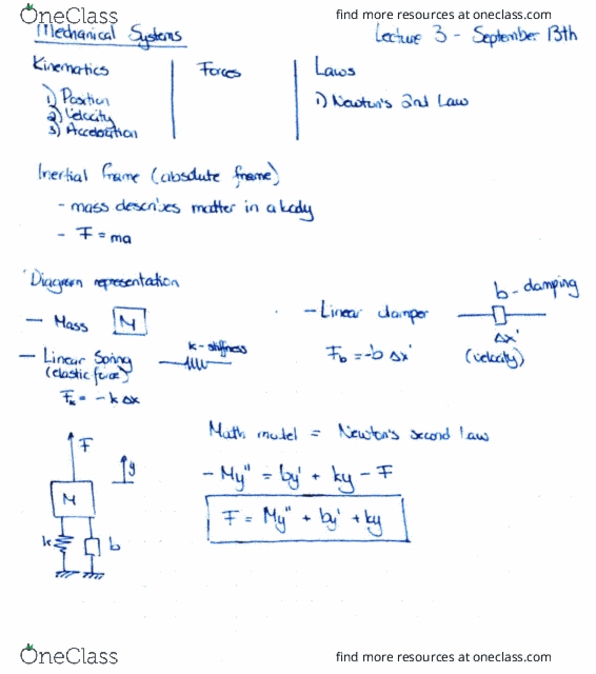 OneClass
find more resources at oneclass.com
Mechanical Systems
Lecture 3 - September 13th
Kinematics
Forces
Laws
1) Position
2) Velocity
3) Acceleration
1) Newton's 2nd Law
Inertial frame (absolute frame)
- mass describes matter in a body
- F = ma
Diagram representation
- Mass M
- Linear Spring
(elastic force)
k - stiffness
Fk = -k Δx
- Linear damper
b - damping
Δx'
(velocity)
Fb = -b Δx'
F
y
M
k
b
Math model = Newton's second law
- My" = by' + ky - F
F = My" + by' + ky
OneClass
find more resources at oneclass.com